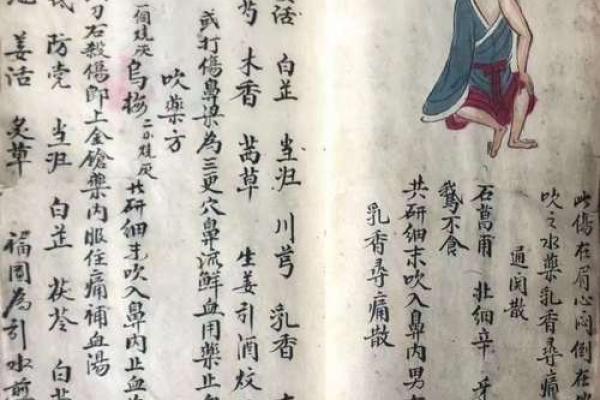 此傷在眉心闷倒在
吹之水藥乳香尋痛
通関散
石菖甫 北細辛 牙
鵝不食
共研細末吹入鼻內男
乳香尋痛散
活 白芷 当归 川芎 乳香
芍 木香 萵草 生姜引酒炆
或打傷鼻梁為三更穴鼻流鮮血用藥止血
吹藥方
個燒灰 烏梅 二个燒灰 共研細末吹入鼻內止血
刀石殺傷即上金鎗藥內服住痛補血湯
芪 防党 当归 白芷 茯苓 白
姜活 炙草 福圆為引水煎